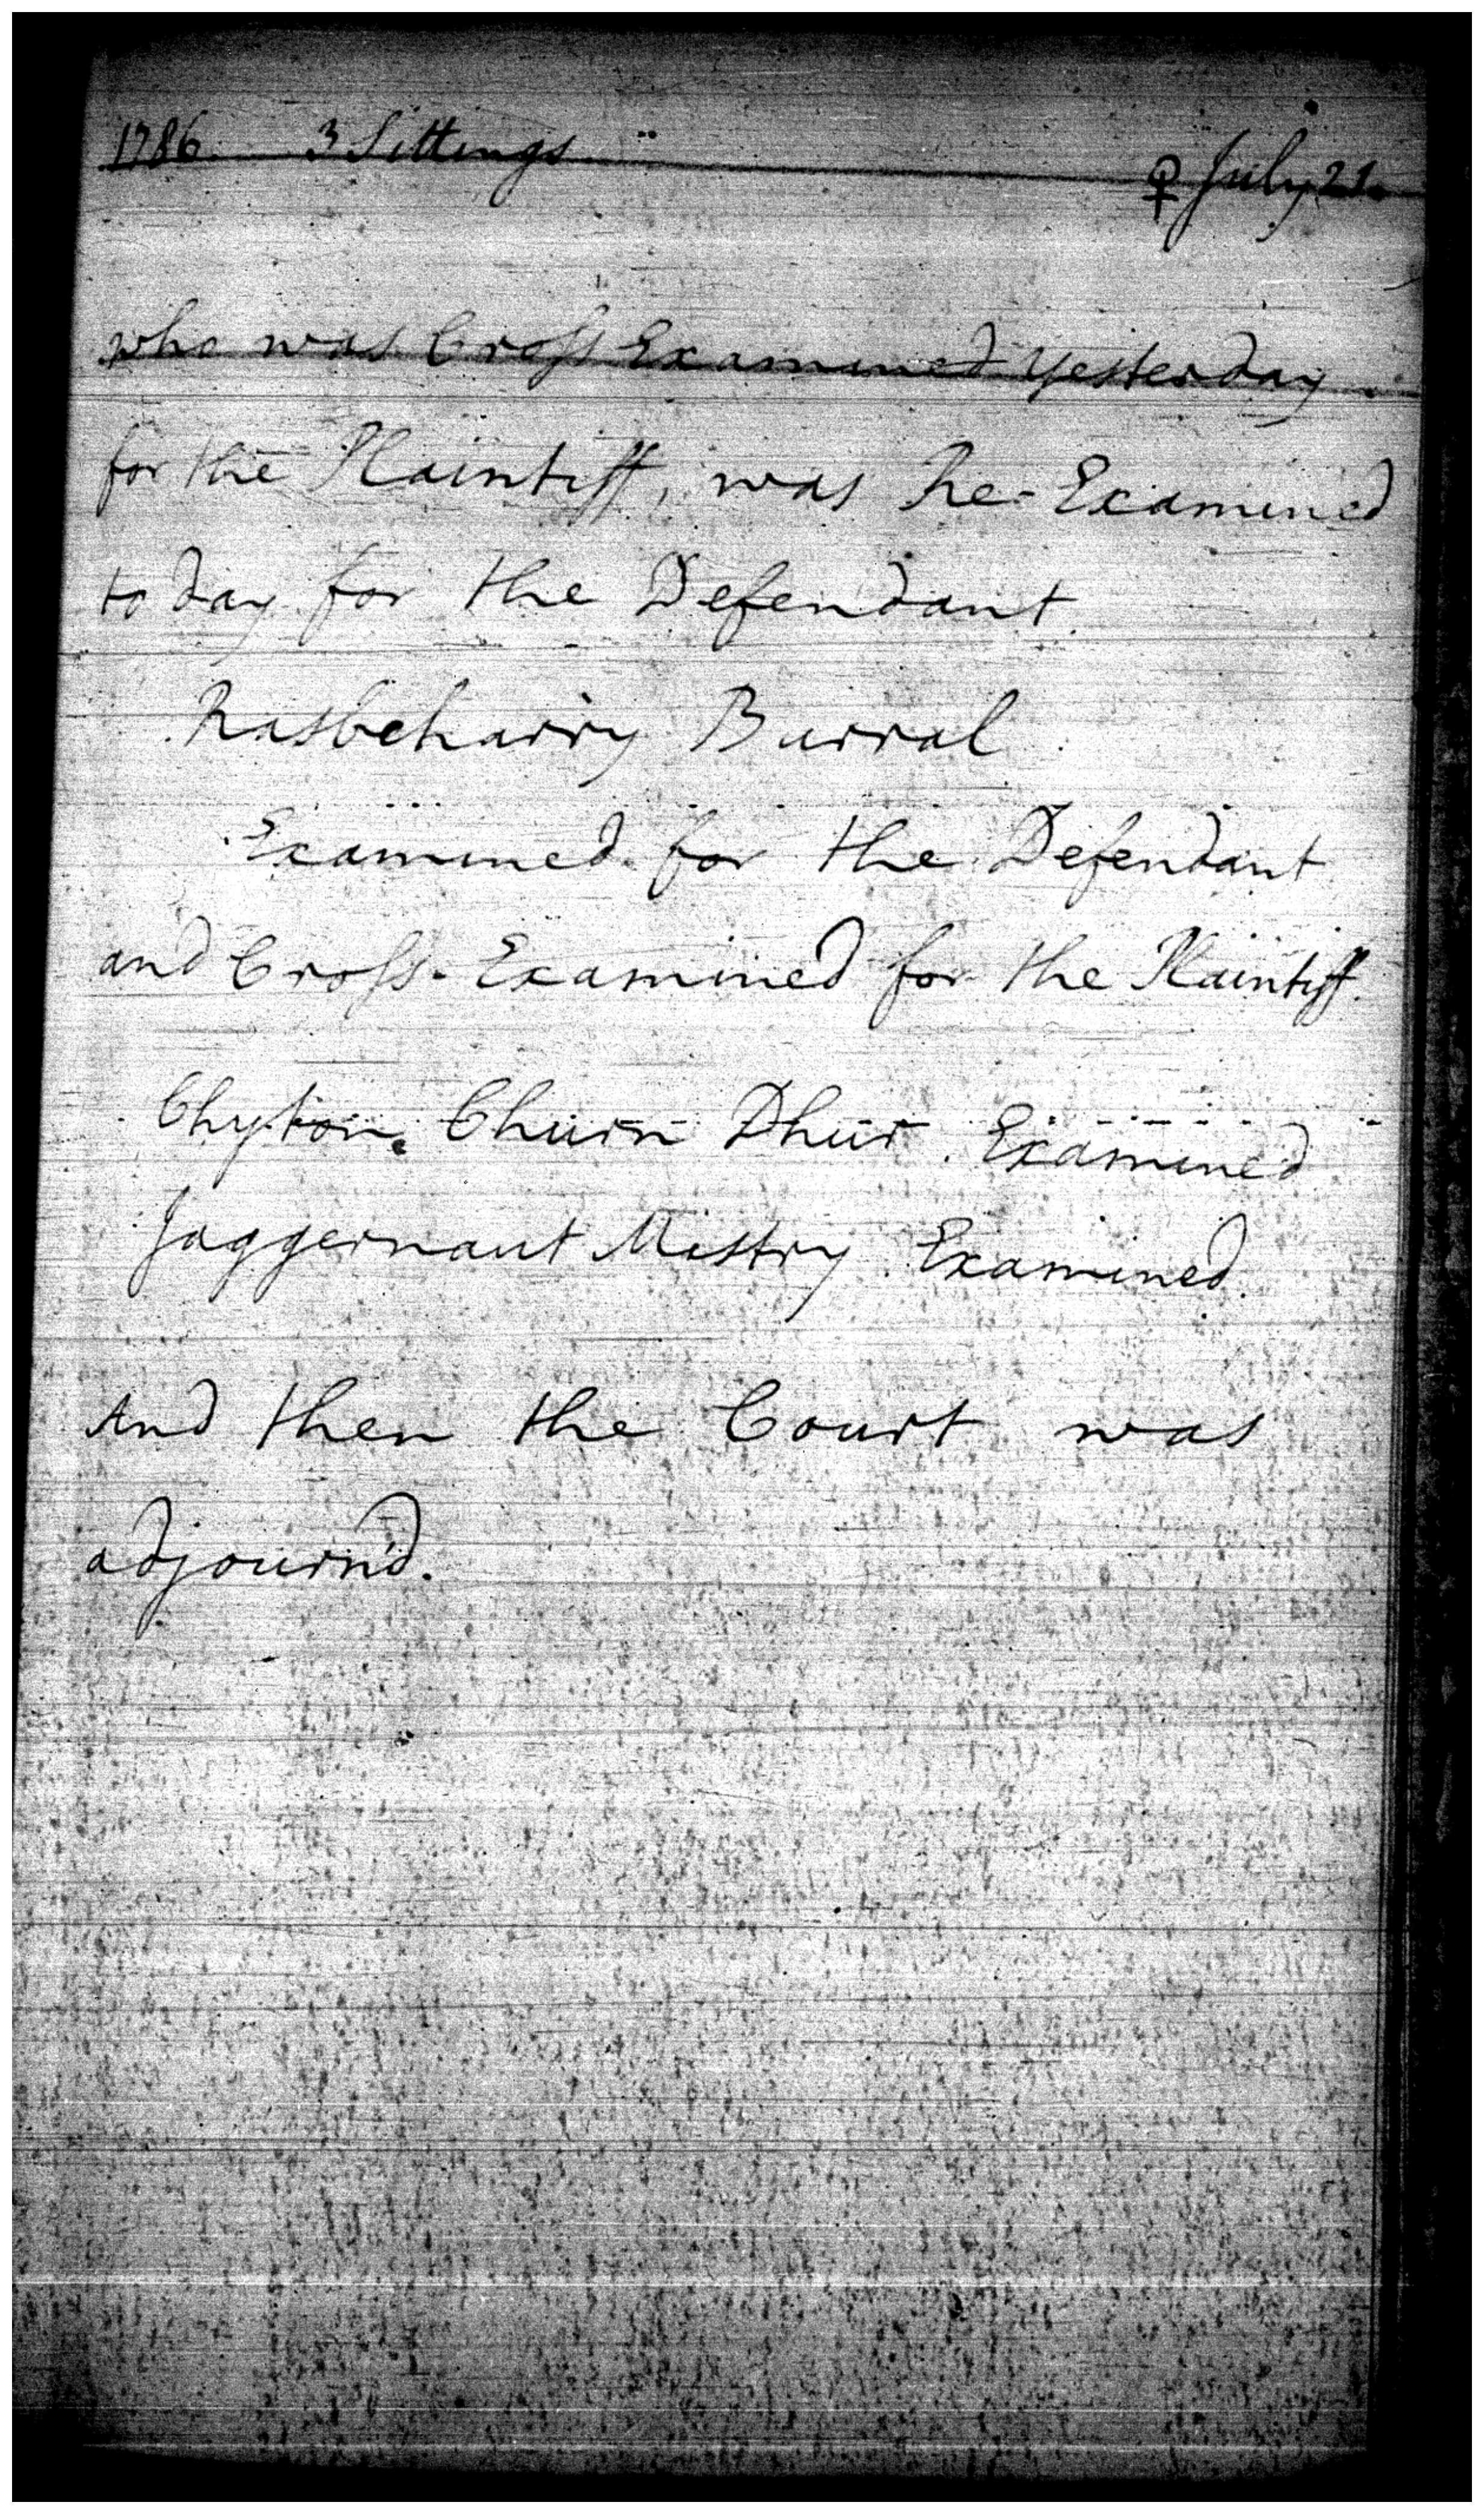 1786 3 Sittings ♀ July 21.
who was Cross Examined yesterday
for the Plaintiff, was Re-Examined
to day for the Defendant.
Rasbeharry Burral
Examined for the Defendant
and Cross-Examined for the Plaintiff.
Chyton Churn Dhur. Examined
Jaggernaut Mistry. Examined.
And then the Court was
adjourn'd.